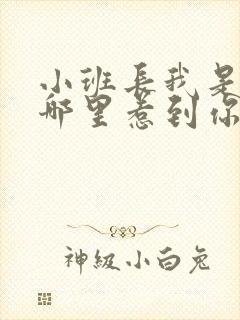 小班長我是
哪里惹到你
神級小白兔